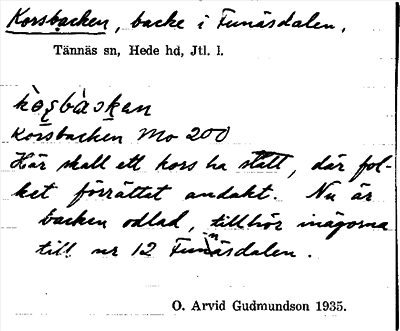 Korsbacken, backe i Funäsdalen,
Tännäs sn, Hede hd, Jtl. l.
Korsbacken Mo 200
Här skall ett kors ha stått, där fol-
ket förrättat andakt. Nu är
backen odlad, tillhör inägorna
till nr 12 Funäsdalen.
O. Arvid Gudmundson 1935.